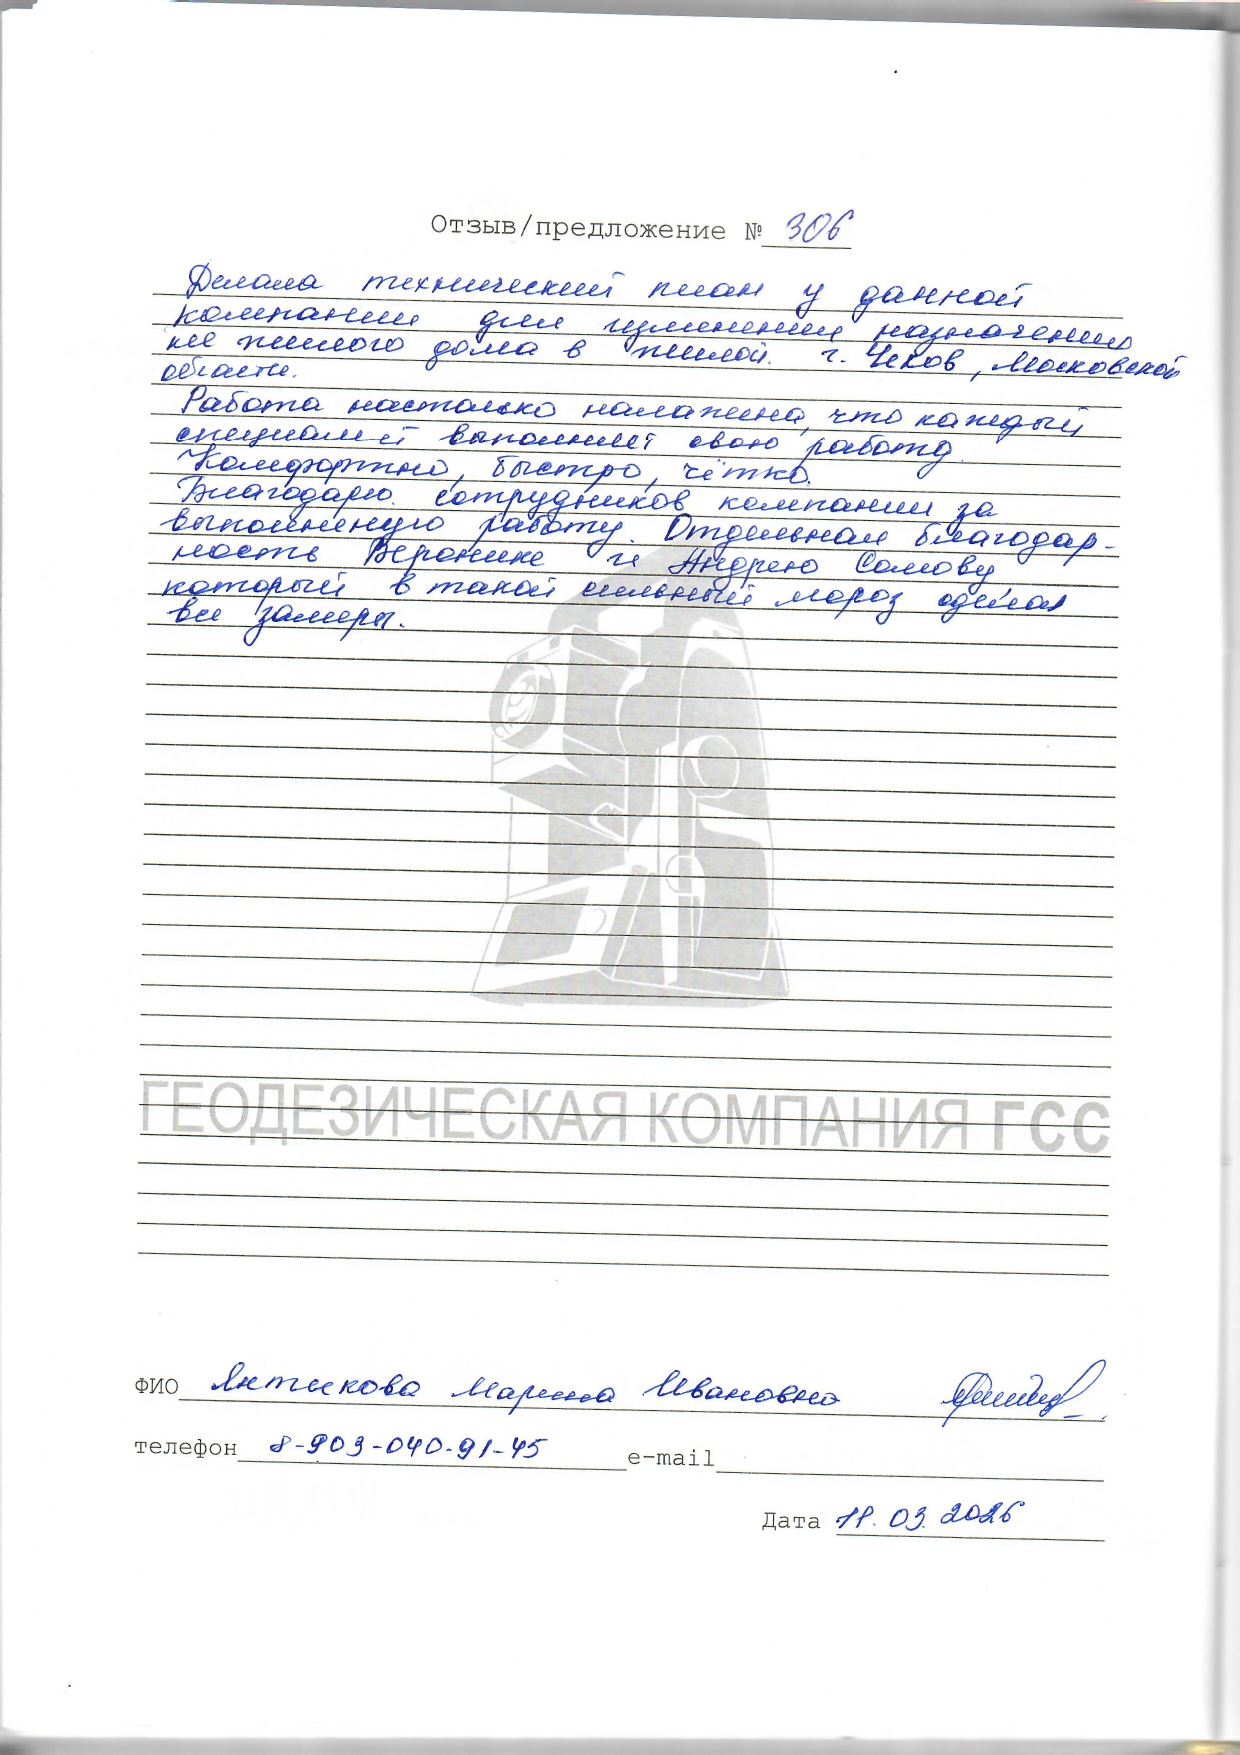 Отзыв/предложение № 306
Делала технический план у данной
компании для изменения назначения
не жилого дома в жилой. г. Чехов, Московской
области.
Работа настолько налажена, что каждый
специалист выполняет свою работу.
Комфортно, быстро, чётко.
Благодарю сотрудников компании за
выполненную работу. Отдельная благодар-
ность Веронике и Андрею Сомову
который в такой сильный мороз сделал
все замеры.
ГЕОДЕЗИЧЕСКАЯ КОМПАНИЯ ГСС
ФИО Антикова Марина Ивановна
телефон 8-903-040-91-45 e-mail
Дата .03.2026